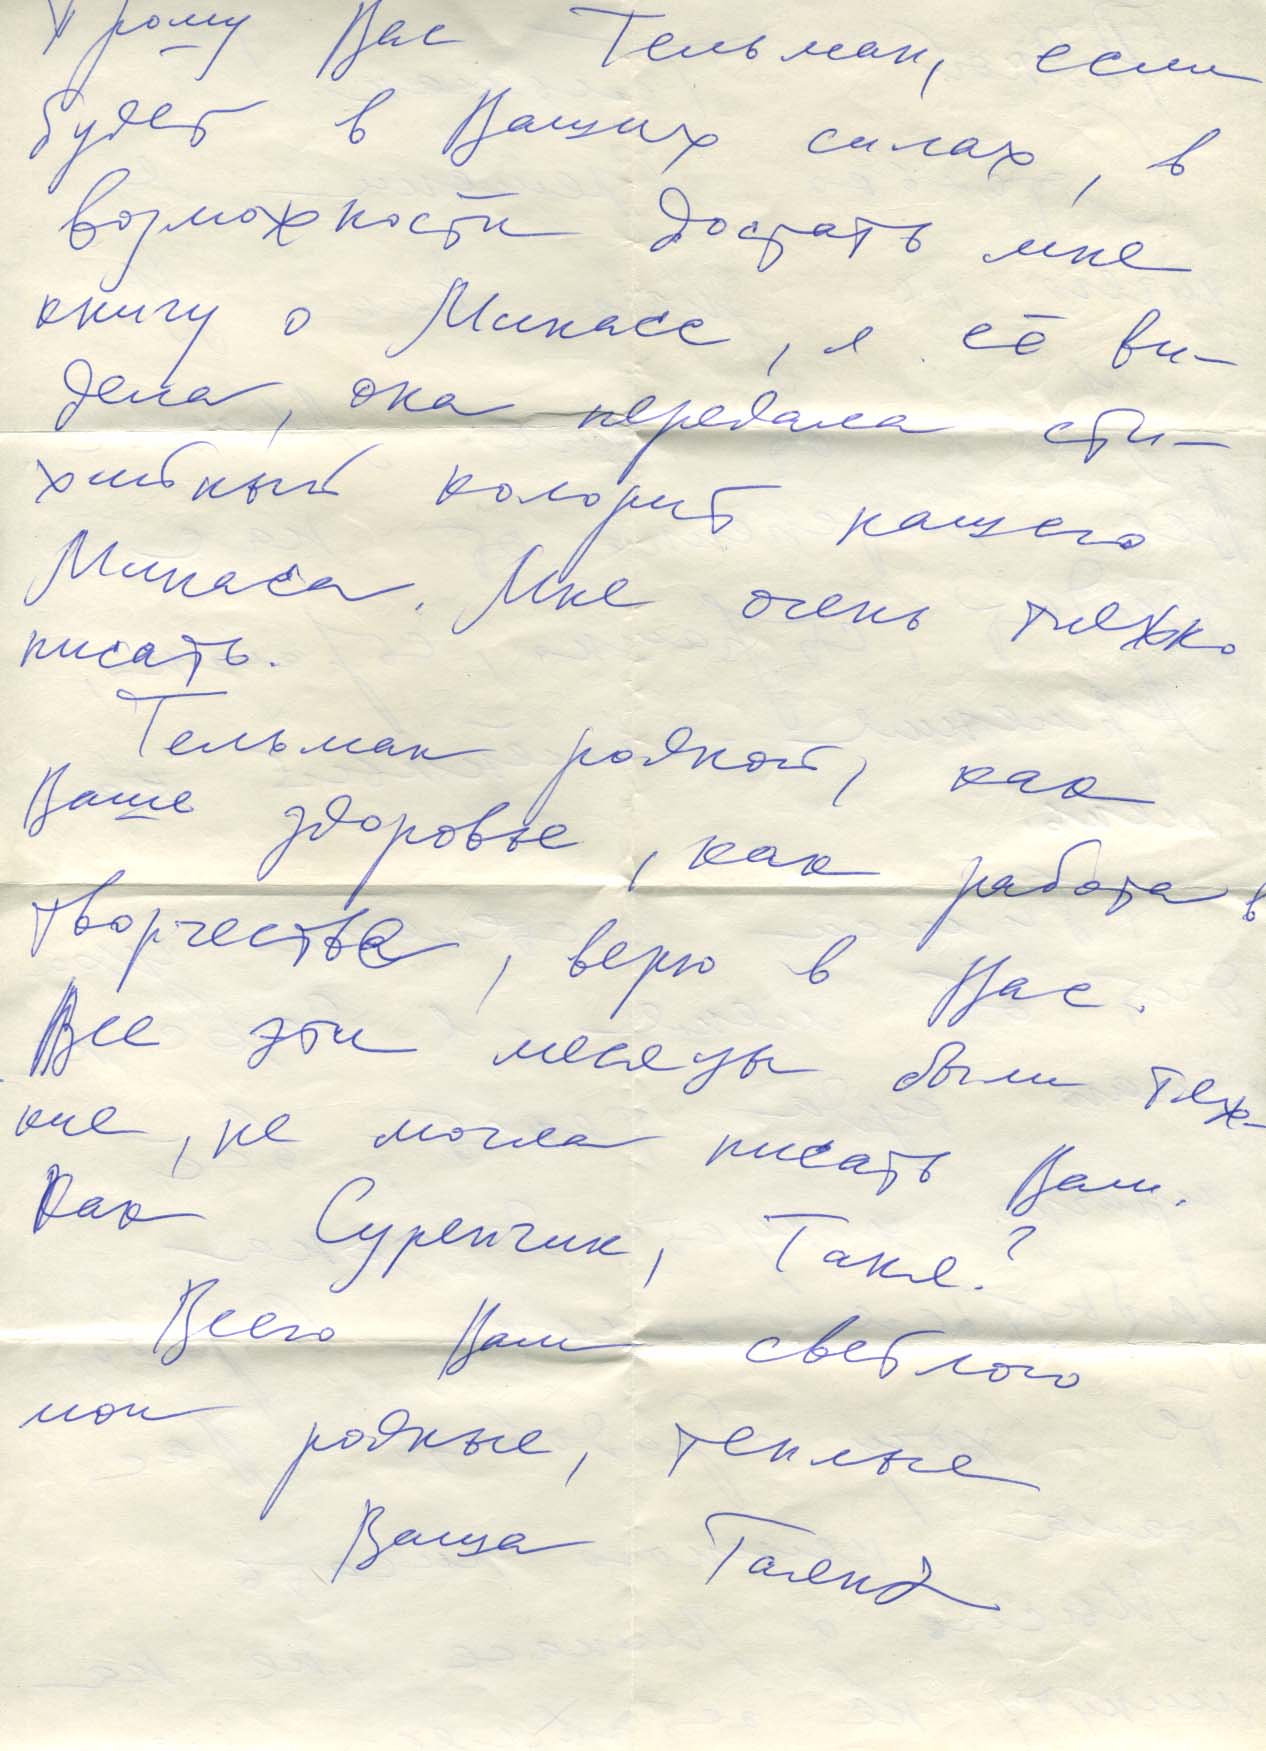 Прошу Вас Тельман, если
будет в Ваших силах, в
возможности достать мне
книгу о Минасе, я её ви-
дела, она передала сти-
хийный колорит нашего
Минаса. Мне очень тяжко
писать.
Тельман родной, как
Ваше здоровье, как работа в
творчестве, верю в Вас.
Все эти месяцы были тяж-
кие, не могла писать Вам.
Как Суренчик, Таня?
Всего Вам светлого
мои родные, теплые
Ваша